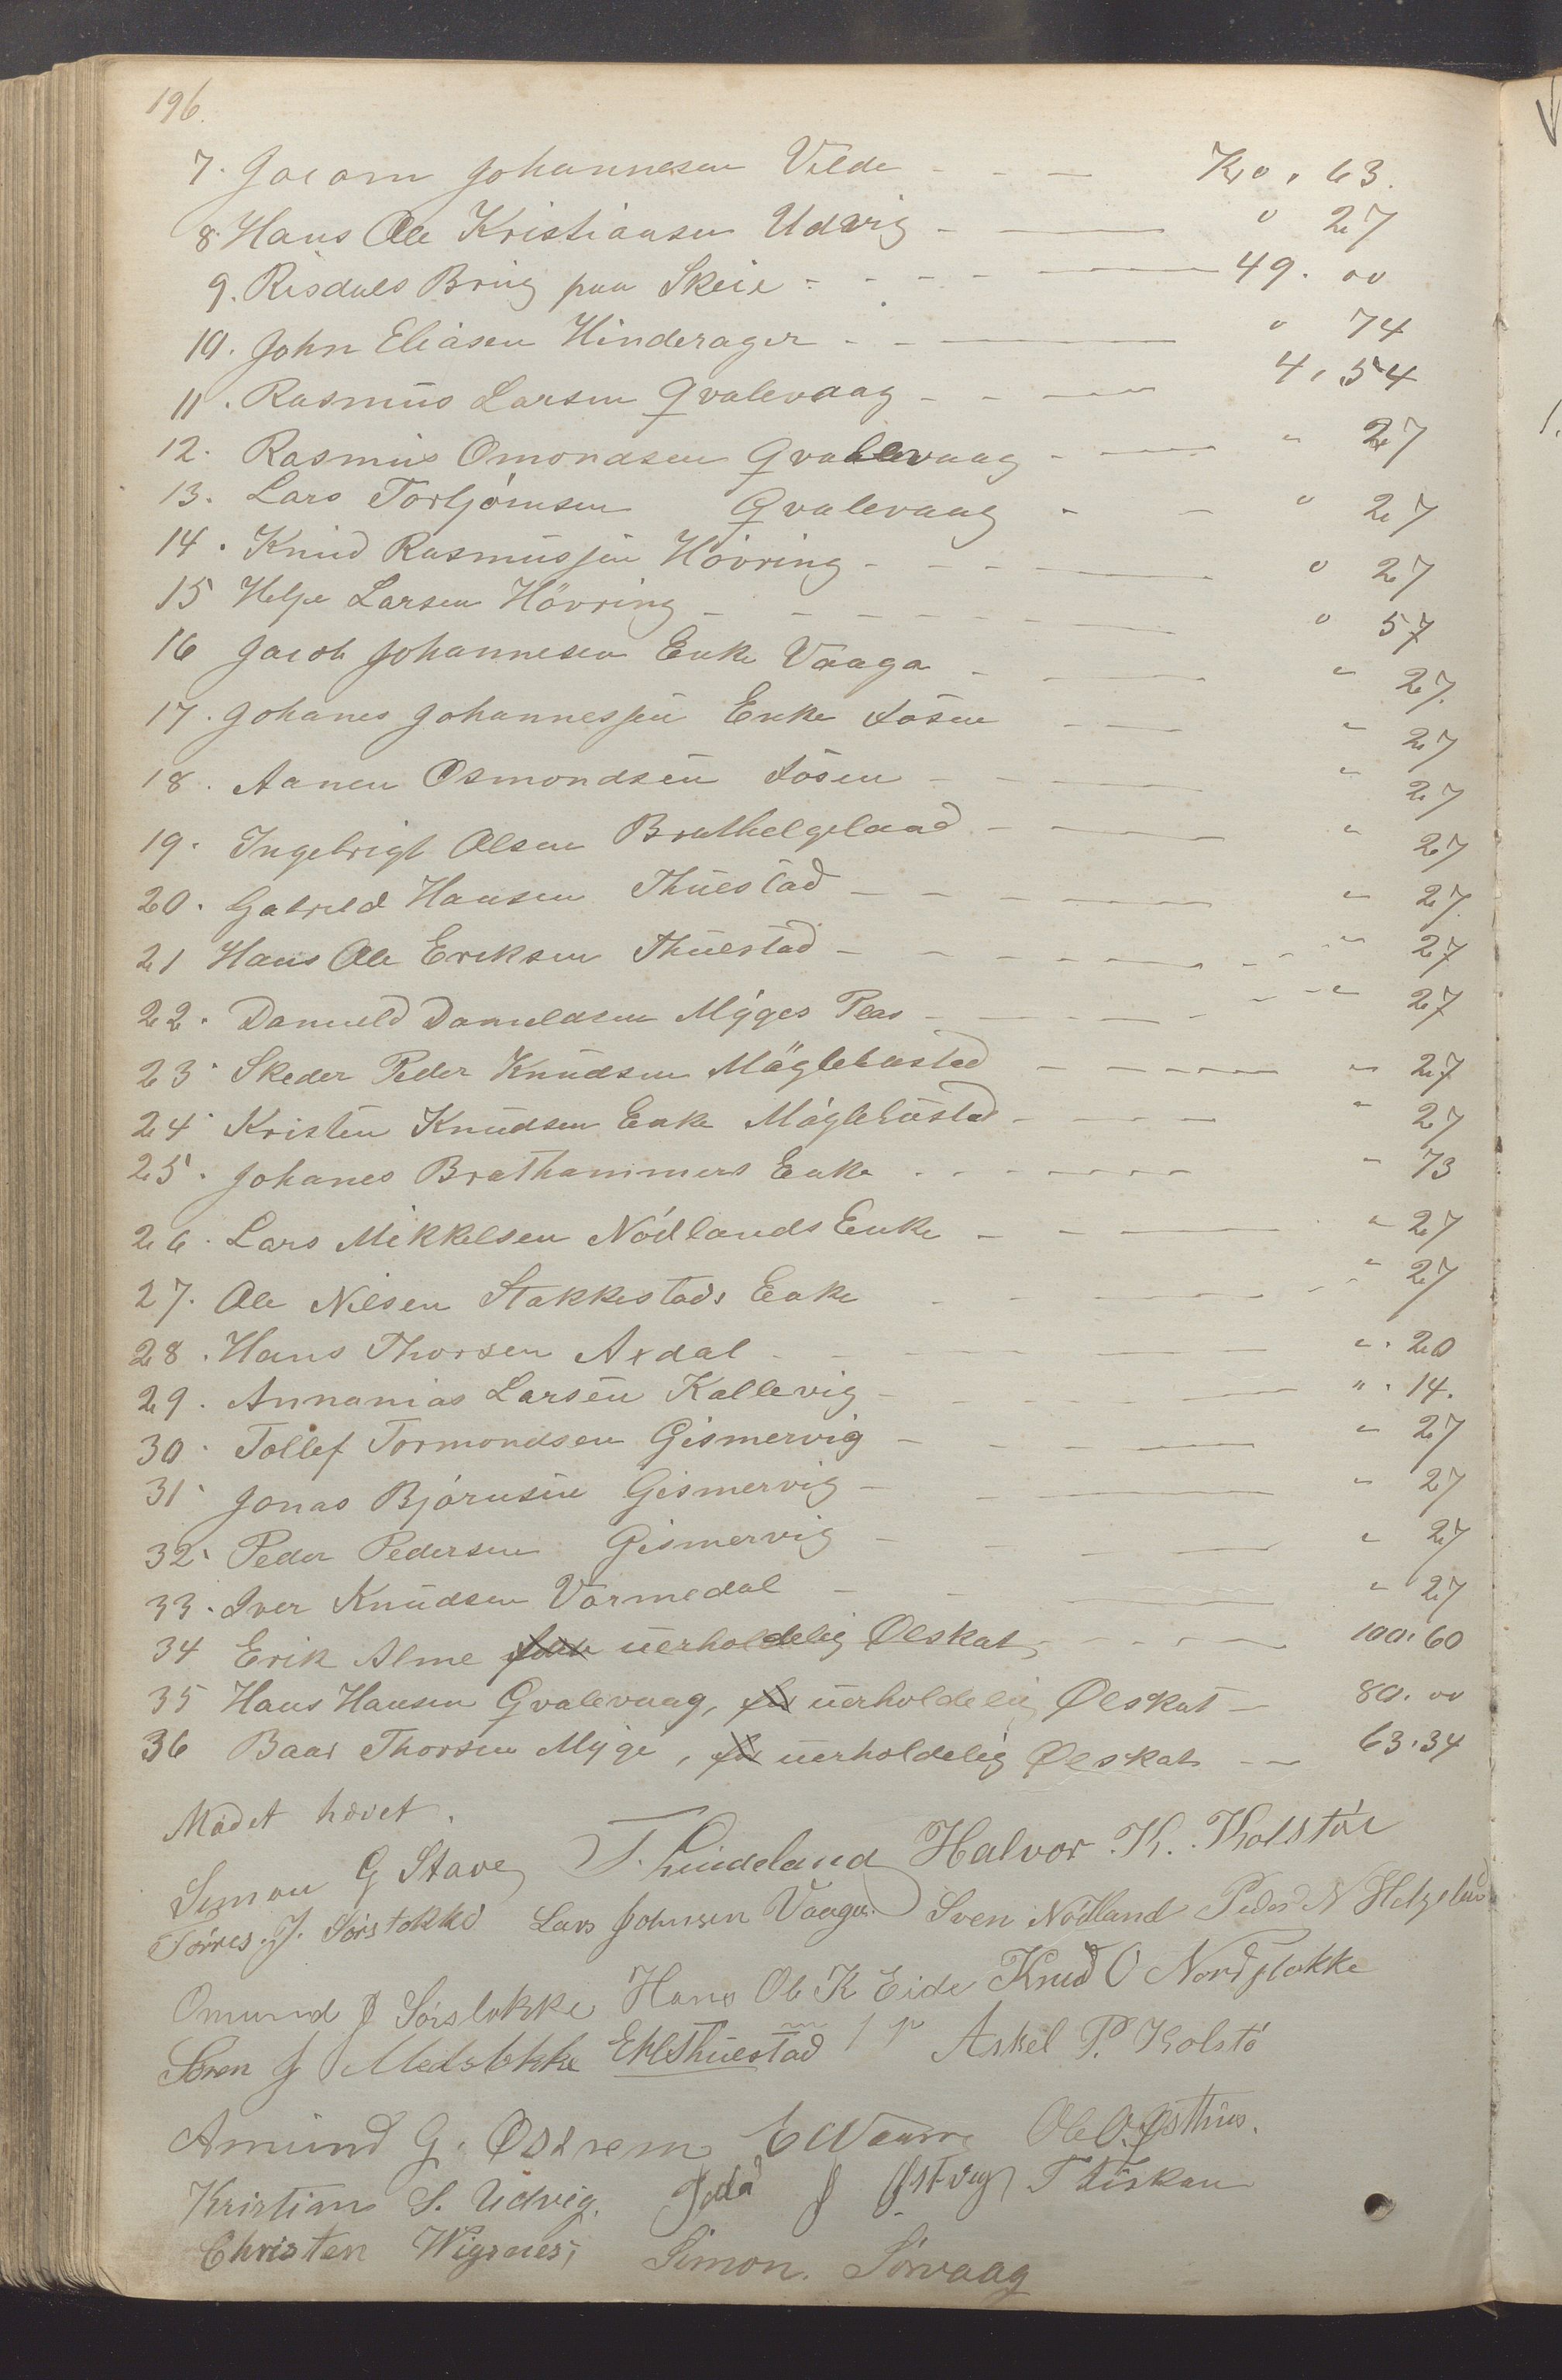 196.
7. Jacom Johannesen Vilde - - — Kr 0, 63.
8. Hans Ole Kristiansen Udvig - — 0 27
9. Risdals Brug paa Skeie - - - — 49. 00
10. John Eliasen Hinderager - - — 0 74
11. Rasmus Larsen Qvalevaag - - — 4, 54
12. Rasmus Omondsen Qvalevaag - — " 27
13. Lars Torbjörnsen Qvalevaag - - 0 27
14. Knud Rasmussen Hövring - - - — 0 27
15 Helje Larsen Hövring - - - - — 0 57
16 Jacob Johannesen Enke Vaaga - — " 27.
17. Johanes Johannessen Enke Fösen - — " 27
18. Aanen Osmondsen Fösen - - — " 27
19. Ingebrigt Olsen Brathelgeland - — " 27
20. Gabrild Hansen Thuestad - - - — " 27.
21 Hans Ole Eriksen Thuestad - - - - — " 27
22. Danield Danieldsen Myges Plas - - — " 27
23. Skeder Peder Knudsen Möglebustad - - — " 27
24. Kristen Knudsen Enke Möglebustad - - - — " 27
25. Johanes Brathammers Enke - - - — " 73
26. Lars Mikkelsen Nödlands Enke - - — " 27
27. Ole Nilsen Stakkestads Enke - - — " 27
28. Hans Thorsen Axdal - - — " . 20
29. Annanias Larsen Kallevig - - — " . 14.
30. Tollef Tormondsen Gismervig - - - — " 27
31. Jonas Björnsen Gismervig - - — " 27
32. Peder Pedersen Gismervig - - — " 27
33. Iver Knudsen Vormedal - - — " 27
34 Erik Alme uerholdelig Ølskat - - — 100. 60
35 Hans Hansen Qvalevaag, for uerholdelig Ølskat — 80. 00
36 Baar Thorsen Myge, for uerholdelig Ølskat — 63. 34
Mödet hævet.
Simon G Stave T. Lindeland Halvor. K. Kolstöe
Törres. J. Sörstokke Lars Johnsen Vaaga. Sven Nödland Peder N Helgeland
Omund J Sörstokke Hans Ole K Eide Knud O Nordstokke
Sören J Medstokke EHThuestad Askel P. Kolstö
Amund G. Østrem Ole O. Østhus.
Kristian S. Udvig. J
Christen Wigsnes, Simon. Sörvaag